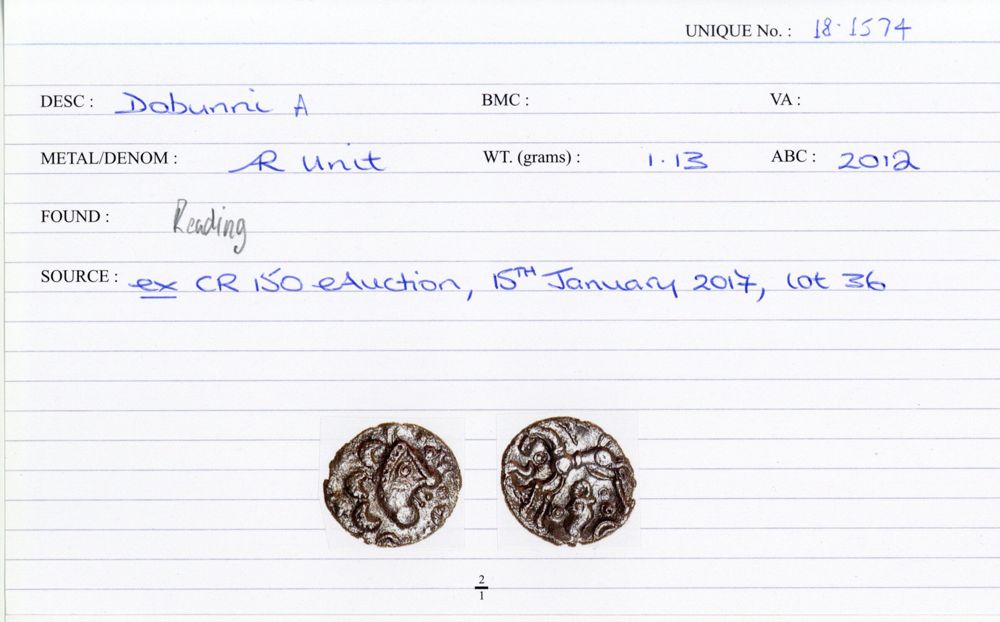 UNIQUE No. : 18.1574
DESC : Dobunni A BMC : VA :
METAL/DENOM : AR Unit WT. (grams) : 1.13 ABC : 2012
FOUND : Reading
SOURCE : ex CR 150 eAuction, 15TH January 2017, lot 36
2
1